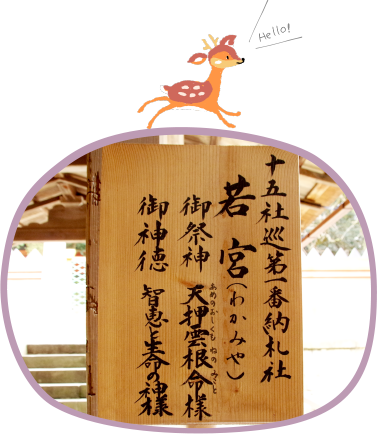 Hello!
十五社巡第一番納札社
若宮(わかみや)
御祭神 天押雲根命様
あめのおしくもねのみこと
御神徳 智恵と生命の神様